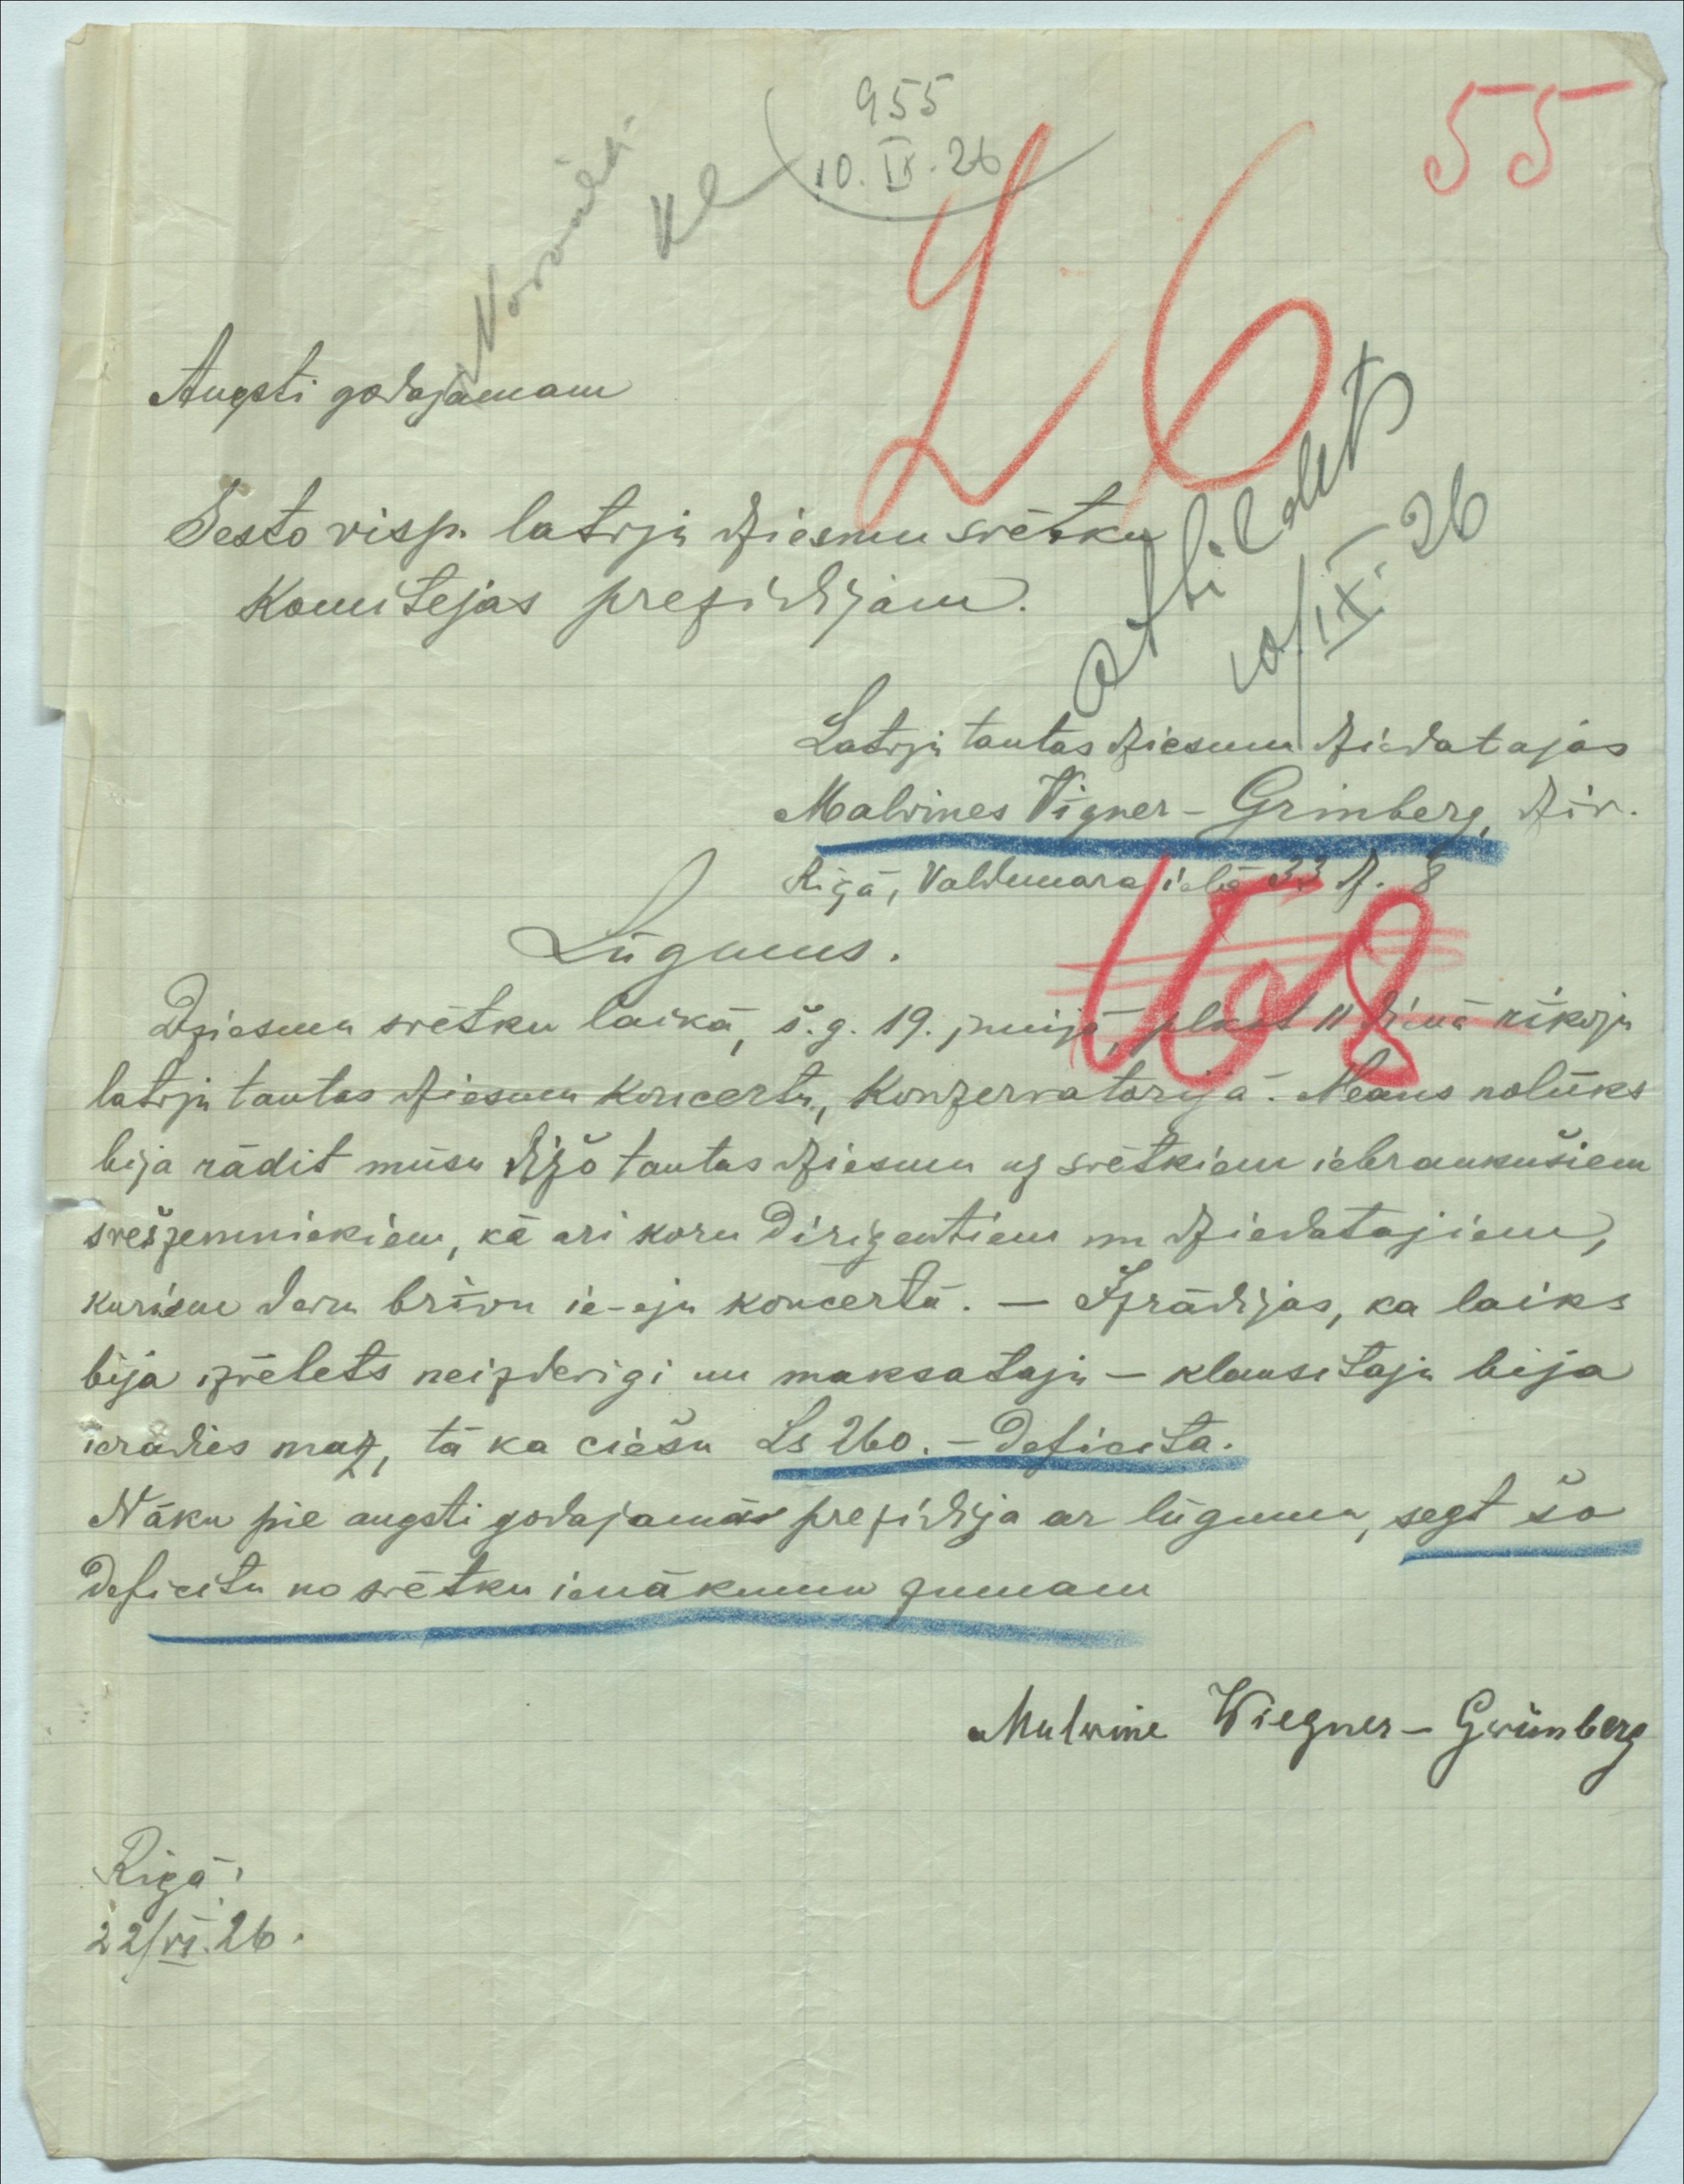 955
10. IX. 26
55
26
Augsti godajamam
Sesto visp. latvju dziesmu svētku
Komitejas prezidijam.
atbildēts
10/IX. 26
Latvju tautas dziesmu dziedatajas
Malvines Vigner-Grinberg, dziv.
Rīgā, Valdemara ielā 33 dz. 8
168
Lūgums.
Dziesmu svētku laikā, š.g. 19. junijā, plkst 11 dienā rīkoju
latvju tautas dziesmu koncertu, Konzervatorijā. Mans nolūks
bija rādit mūsu dižo tautas dziesmu uz svētkiem iebraukušiem
svešzemniekiem, kā ari koru dirigentiem un dziedatajiem,
kuriem devu brīvu ie-eju koncertā. — Izrādijas, ka laiks
bija izvēlets neizdevigi un maksataju — klausitaju bija
ieradies maz, tā ka ciešu Ls 260.- deficita.
Nāku pie augsti godajamās prezidija ar lūgumu, segt šo
deficitu no svētku ienākumu
Malwine Wiegner-Grünberg
Rīgā,
22/VI. 26.